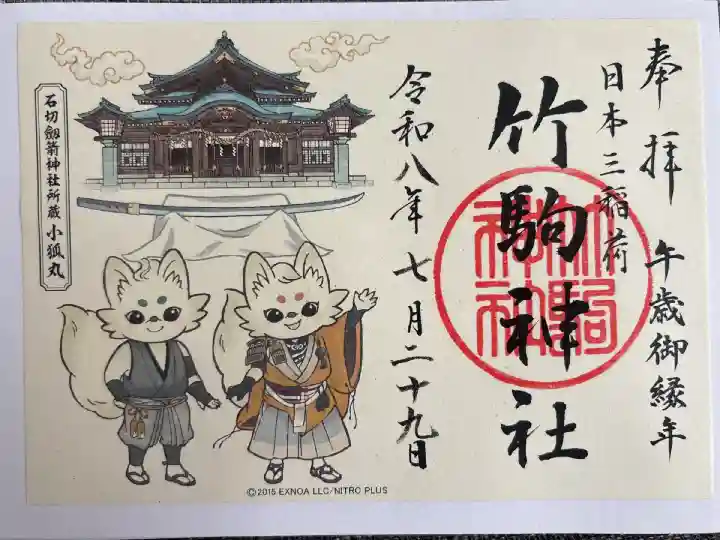 奉拝 午歳御縁年
日本三稲荷
竹駒神社
竹駒神社
令和八年七月二十九日
石切劔箭神社所蔵 小狐丸
©2015 EXNOA LLC/NITRO PLUS